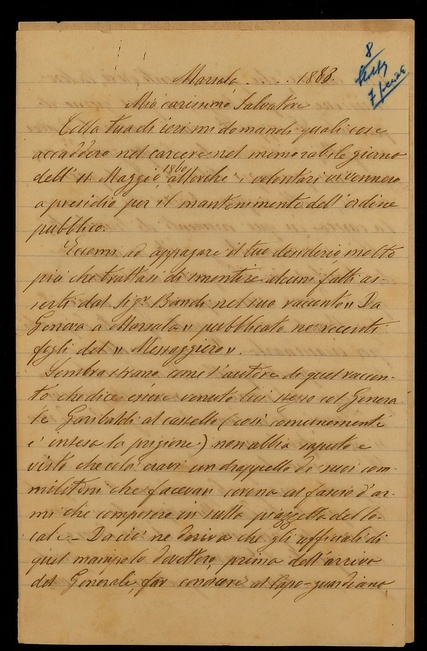 8
Marsala . . 1888.
Mio carissimo Salvatore
Colla tua di ieri mi domandi quali cose
accaddero nel carcere nel memorabile giorno
dell' 11 Maggio 1860 allorchè i volontari vi vennero
a presidio per il mantenimento dell' ordine
pubblico.
Eccomi ad appagare il tuo desiderio molto
più che trattasi di smentire alcuni fatti as-
serti dal Sigr Bandi nel suo racconto "Da
Genova a Marsala" pubblicato ne' recenti
fogli del "Messaggiero".
Sembra strano come l'autore di quel raccon-
to che dice essere venuto lui stesso col Genera
le Garibaldi al castello (così comunemente
è intesa la prigione) non abbia saputo e
visto che colà eravi un drappello de' suoi com-
militoni che facevan corona al fascio d'ar-
mi che composero in sulla piazzetta del lo-
cale - Da ciò ne deriva che gli uffiziali di
quel manipolo dovettero prima dell' arrivo
del Generale, far condurre al Capo-guardiano